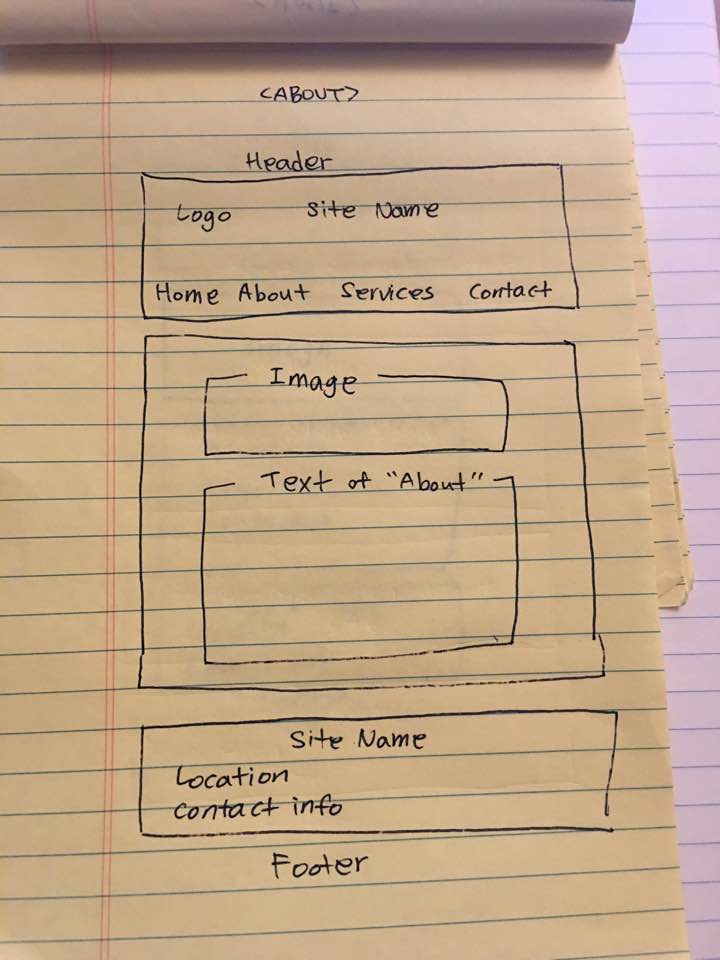 <ABOUT>
Header
Logo Site Name
Home About Services Contact
Image
Text of "About"
Site Name
Location
contact info
Footer